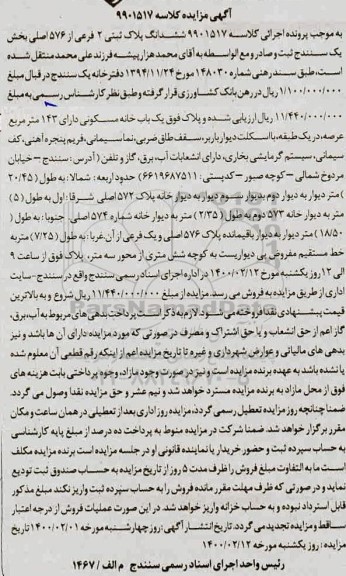 آگهی مزایده کلاسه ۹۹۰۱۵۱۷
به موجب پرونده اجرائی کلاسه ۹۹۰۱۵۱۷ ششدانگ پلاک ثبتی ۲ فرعی از ۵۷۶ اصلی بخش
یک سنندج ثبت و صادر و مع الواسطه به آقای محمد هزار پیشه فرزند علی محمد منتقل شده
است، طبق سند رهنی شماره ۱۴۸۰۳۰ مورخ ۱۳۹۴/۱۱/۲۴ دفترخانه یک سنندج در قبال مبلغ
۱/۱۰۰/۰۰۰/۰۰۰ ریال در رهن بانک کشاورزی قرار گرفته و طبق نظر کارشناس رسمی به مبلغ
۱۱/۴۴۰/۰۰۰/۰۰۰ ریال ارزیابی شده و پلاک فوق یک باب خانه مسکونی دارای ۱۴۳ متر مربع
عرصه، در یک طبقه، با اسکلت دیوار باربر، سقف طاق ضربی، نما سیمانی، فریم پنجره آهنی، کف
سیمانی، سیستم گرمایشی بخاری، دارای انشعابات آب، برق، گاز و تلفن (آدرس: سنندج – خیابان
مردوخ شمالی – کوچه صبور – کدپستی: ۶۶۱۹۶۸۷۵۱۱) حدود اربعه: شمالا: به طول (۲۰/۴۵
) متر دیوار به دیوار دوم بدیوار و دیوار به دیوار خانه پلاک ۵۷۲ اصلی شرقا: اول به طول (۵)
متر به دیوار خانه ۵۷۳ دوم به طول (۲/۳۵) متر به دیوار خانه شماره ۵۷۴ اصلی، جنوبا: به طول (
۱۸/۵۰) متر دیوار به دیوار باقیمانده پلاک ۵۷۶ اصلی و یک فرعی از آن، غربا: به طول (۷/۲۵) متر به
خط مستقیم مفروض پی دیواریست به کوچه شش متری از محور سه متر، پلاک فوق از ساعت ۹
الی ۱۲ روز یکشنبه مورخ ۱۴۰۰/۰۲/۱۲ در اداره اجرای اسناد رسمی سنندج واقع در سنندج- سایت
اداری از طریق مزایده به فروش می رسد. مزایده از مبلغ ۱۱/۴۴۰/۰۰۰/۰۰۰ ریال شروع و به بالاترین
قیمت پیشنهادی نقدا فروخته می شود. لازم به ذکر است پرداخت بدهی های مربوط به آب، برق،
گاز اعم از حق انشعاب و یا حق اشتراک و مصرف در صورتی که مورد مزایده دارای آن ها باشد و نیز
بدهی های مالیاتی و عوارض شهرداری و غیره تا تاریخ مزایده اعم از اینکه رقم قطعی آن معلوم شده
یا نشده باشد به عهده برنده مزایده است و نیز در صورت وجود مازاد، وجوه پرداختی بابت هزینه های
فوق از محل مازاد به برنده مزایده مسترد خواهد شد و نیم عشر و حق مزایده نقدا وصول می گردد.
ضمنا چنانچه روز مزایده تعطیل رسمی گردد، مزایده روز اداری بعد از تعطیلی در همان ساعت و مکان
مقرر برگزار خواهد شد. ضمنا شرکت در مزایده منوط به پرداخت ده درصد از مبلغ پایه کارشناسی
به حساب سپرده ثبت و حضور خریدار یا نماینده قانونی او در جلسه مزایده است برنده مزایده مکلف
است ما به التفاوت مبلغ فروش را ظرف مدت ۵ روز از تاریخ مزایده به حساب صندوق ثبت تودیع
نماید و در صورتی که ظرف مهلت مقرر مانده فروش را به حساب سپرده ثبت واریز نکند مبلغ مذکور
قابل استرداد نبوده و به حساب خزانه واریز خواهد شد. در این صورت عملیات فروش از درجه اعتبار
ساقط و مزایده تجدید می گردد. تاریخ انتشار آگهی: روز چهارشنبه مورخه ۱۴۰۰/۰۲/۰۱ تاریخ
مزایده: روز یکشنبه مورخه ۱۴۰۰/۰۲/۱۲
رئیس واحد اجرای اسناد رسمی سنندج م الف / ۱۴۶۷